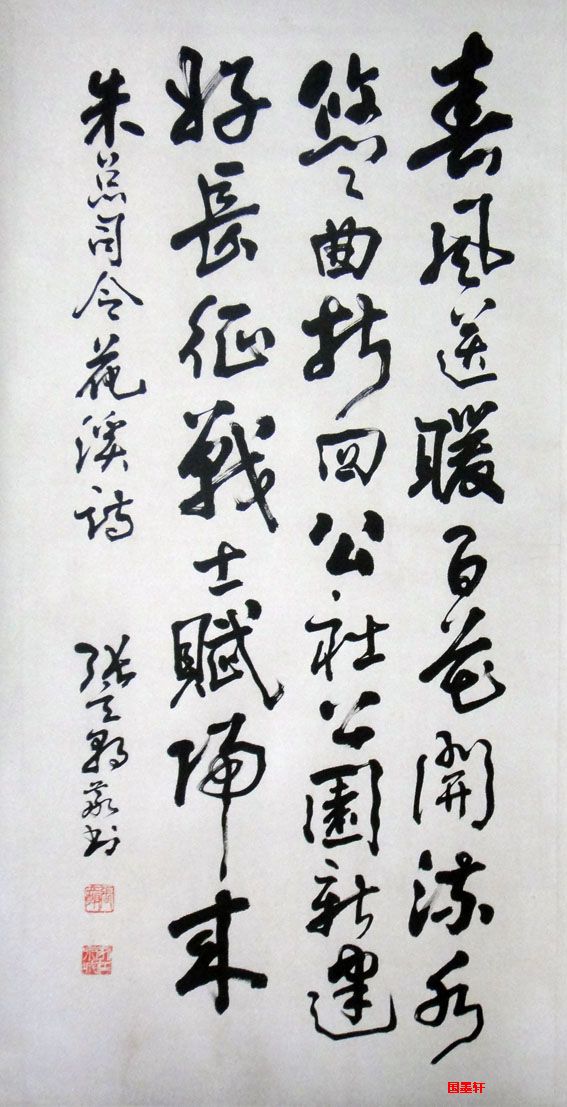 春風送暖百花開流水
悠々曲折回公社公園新建
好長征戰士賦歸来
朱总司令花溪詩
張天敬书
国墨轩